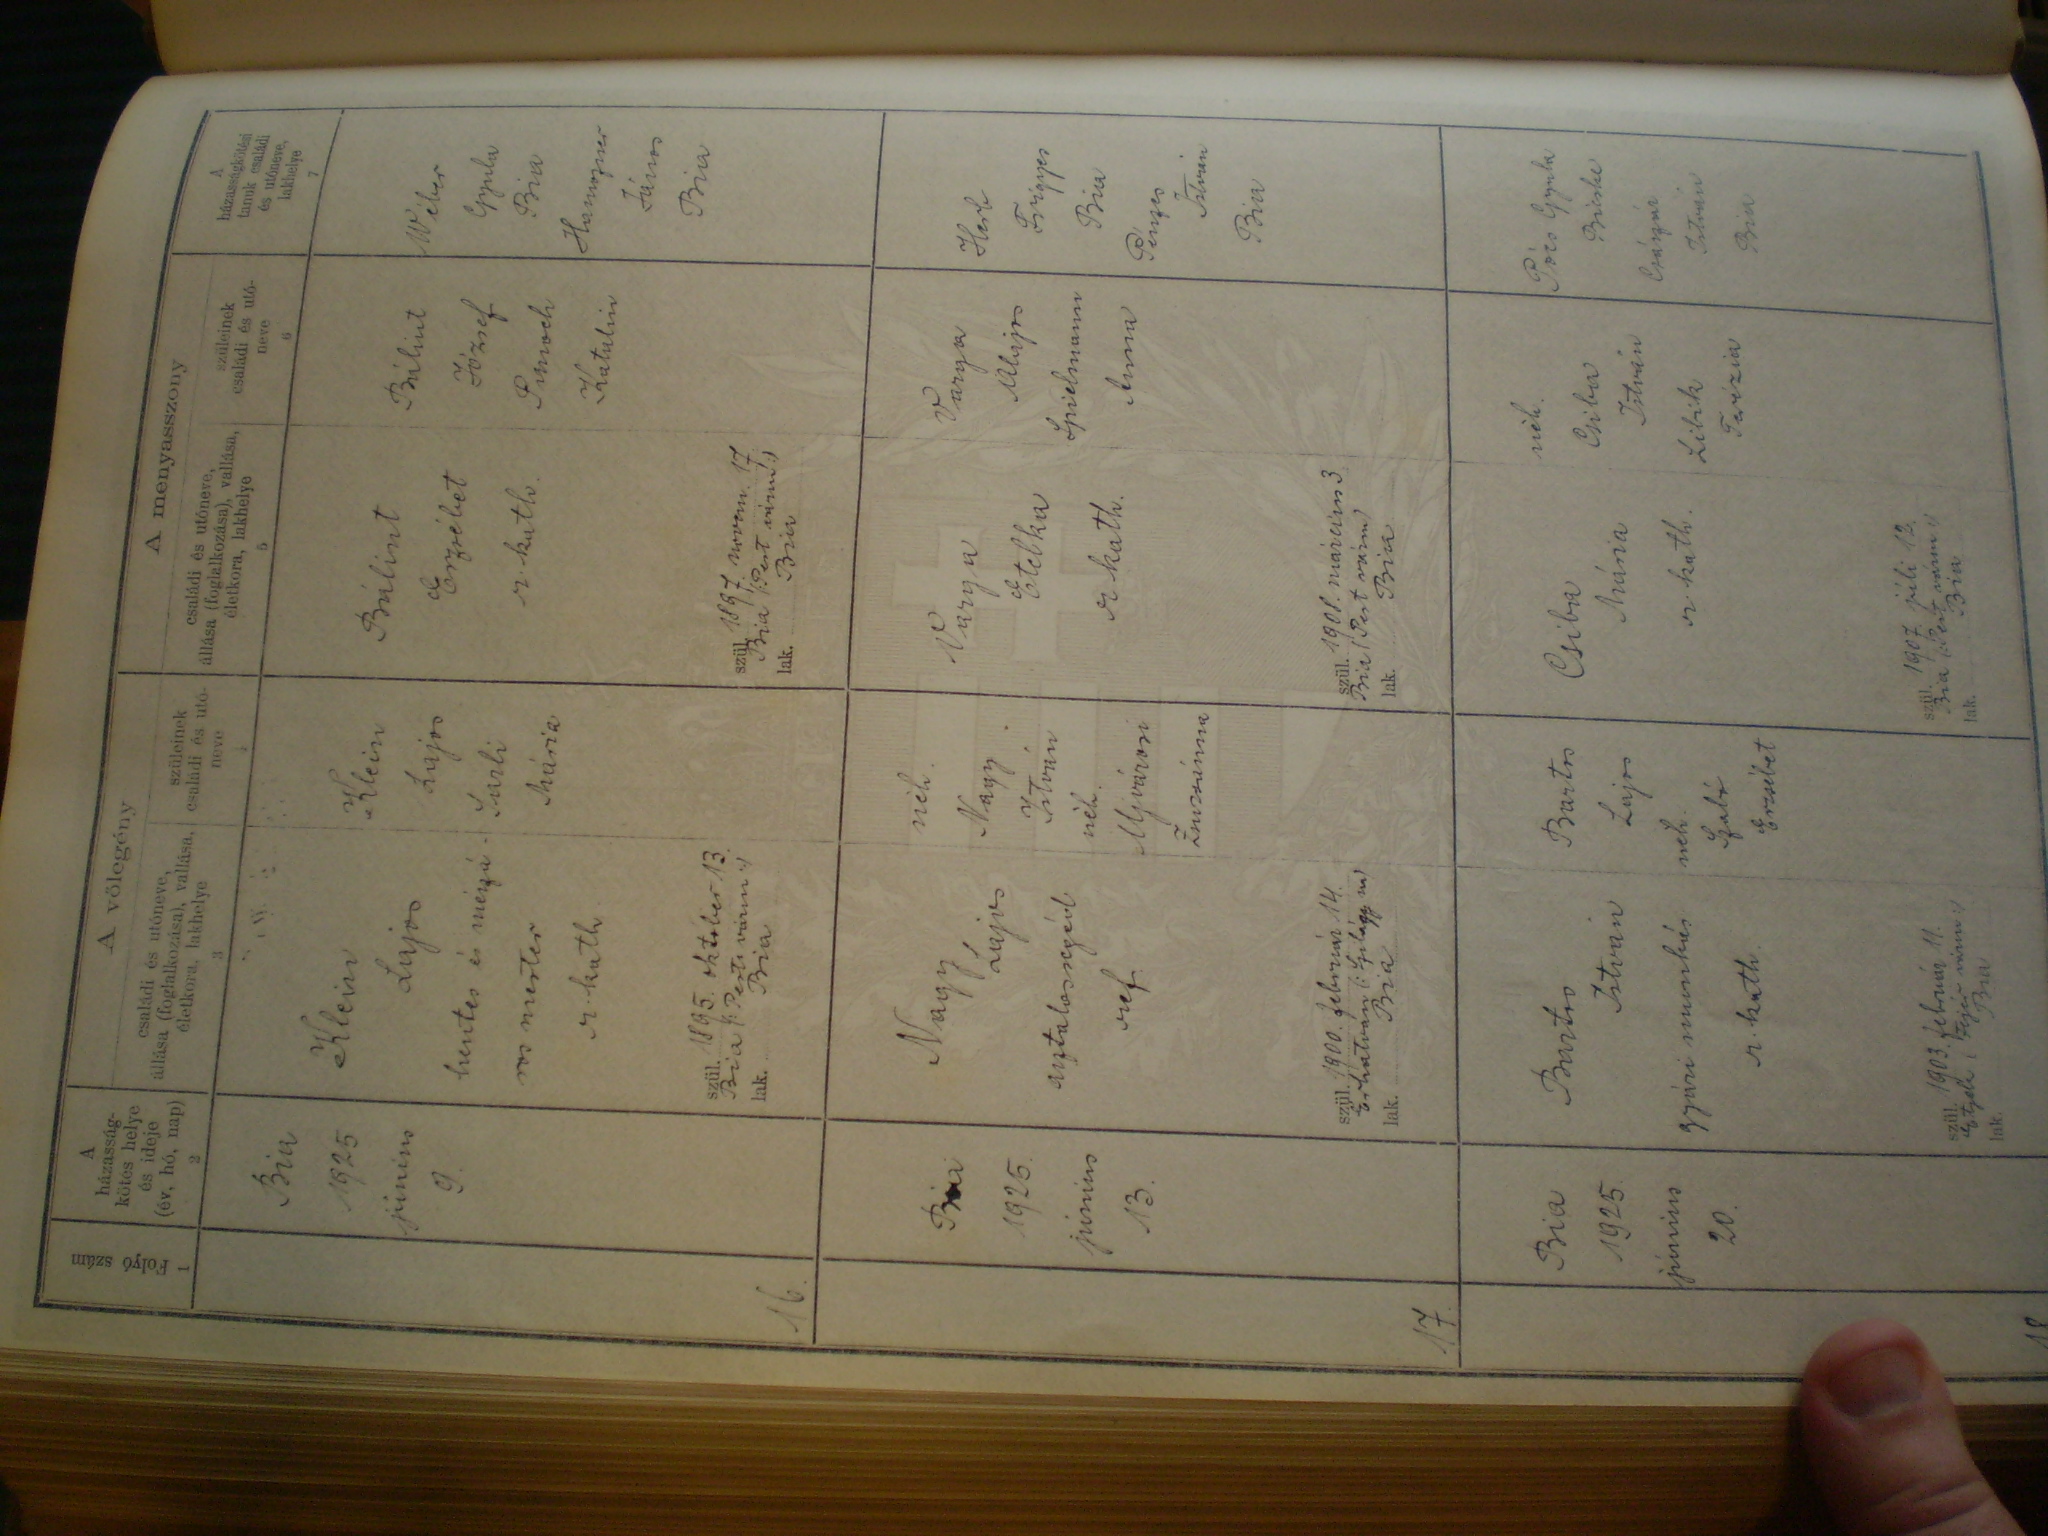 A vőlegény
A menyasszony
1
Folyó szám
A
házasság-
kötés helye
és ideje
(év, hó, nap)
2
családi és utóneve,
állása (foglalkozása), vallása,
életkora, lakhelye
3
szüleinek
családi és utó-
neve
családi és utóneve,
állása (foglalkozása), vallása,
életkora, lakhelye
5
szüleinek
családi és utó-
neve
6
A
házasságkötési
tanuk családi
és utóneve,
lakhelye
7
16.
Bia
1925
június
9.
Klein
Lajos
hentes és mészá-
ros mester
r. kath.
szül. 1895. október 13.
Bia (: Pest várm :)
lak. Bia
Klein
Lajos
Mária
Bálint
Erzsébet
r. kath.
szül. 1897. novem. 17.
Bia (: Pest várm :)
lak. Bia
Bálint
József
Katalin
Wéber
Gyula
Bia
János
Bia
17.
Bia
1925.
június
13.
Nagy
Lajos
asztalossegéd
ref.
szül. 1900. február 14.
Érhatvan (: Szilágy m)
lak. Bia
néh.
Nagy
István
néh.
Ujvárosi
Zsuzsánna
Varga
Etelka
r. kath.
szül. 1908. márczius 3
Bia (Pest várm)
lak. Bia
Varga
Alajos
Spielmann
Anna
Herk
Frigyes
Bia
Pénzes
István
Bia
18
Bia
1925.
június
20.
Bartos
István
gyári munkás
r. kath.
szül. 1903. február 11.
Etyek (: Fejér várm :)
lak. Bia
Bartos
Lajos
neh.
Szabó
Erzsébet
Csiba
Mária
r. kath.
szül. 1907. júli 12.
Bia (: Pest várm :)
lak. Bia
néh.
Csiba
István
Libik
Terézia
Pócs Gyula
Bicske
Császár
István
Bia